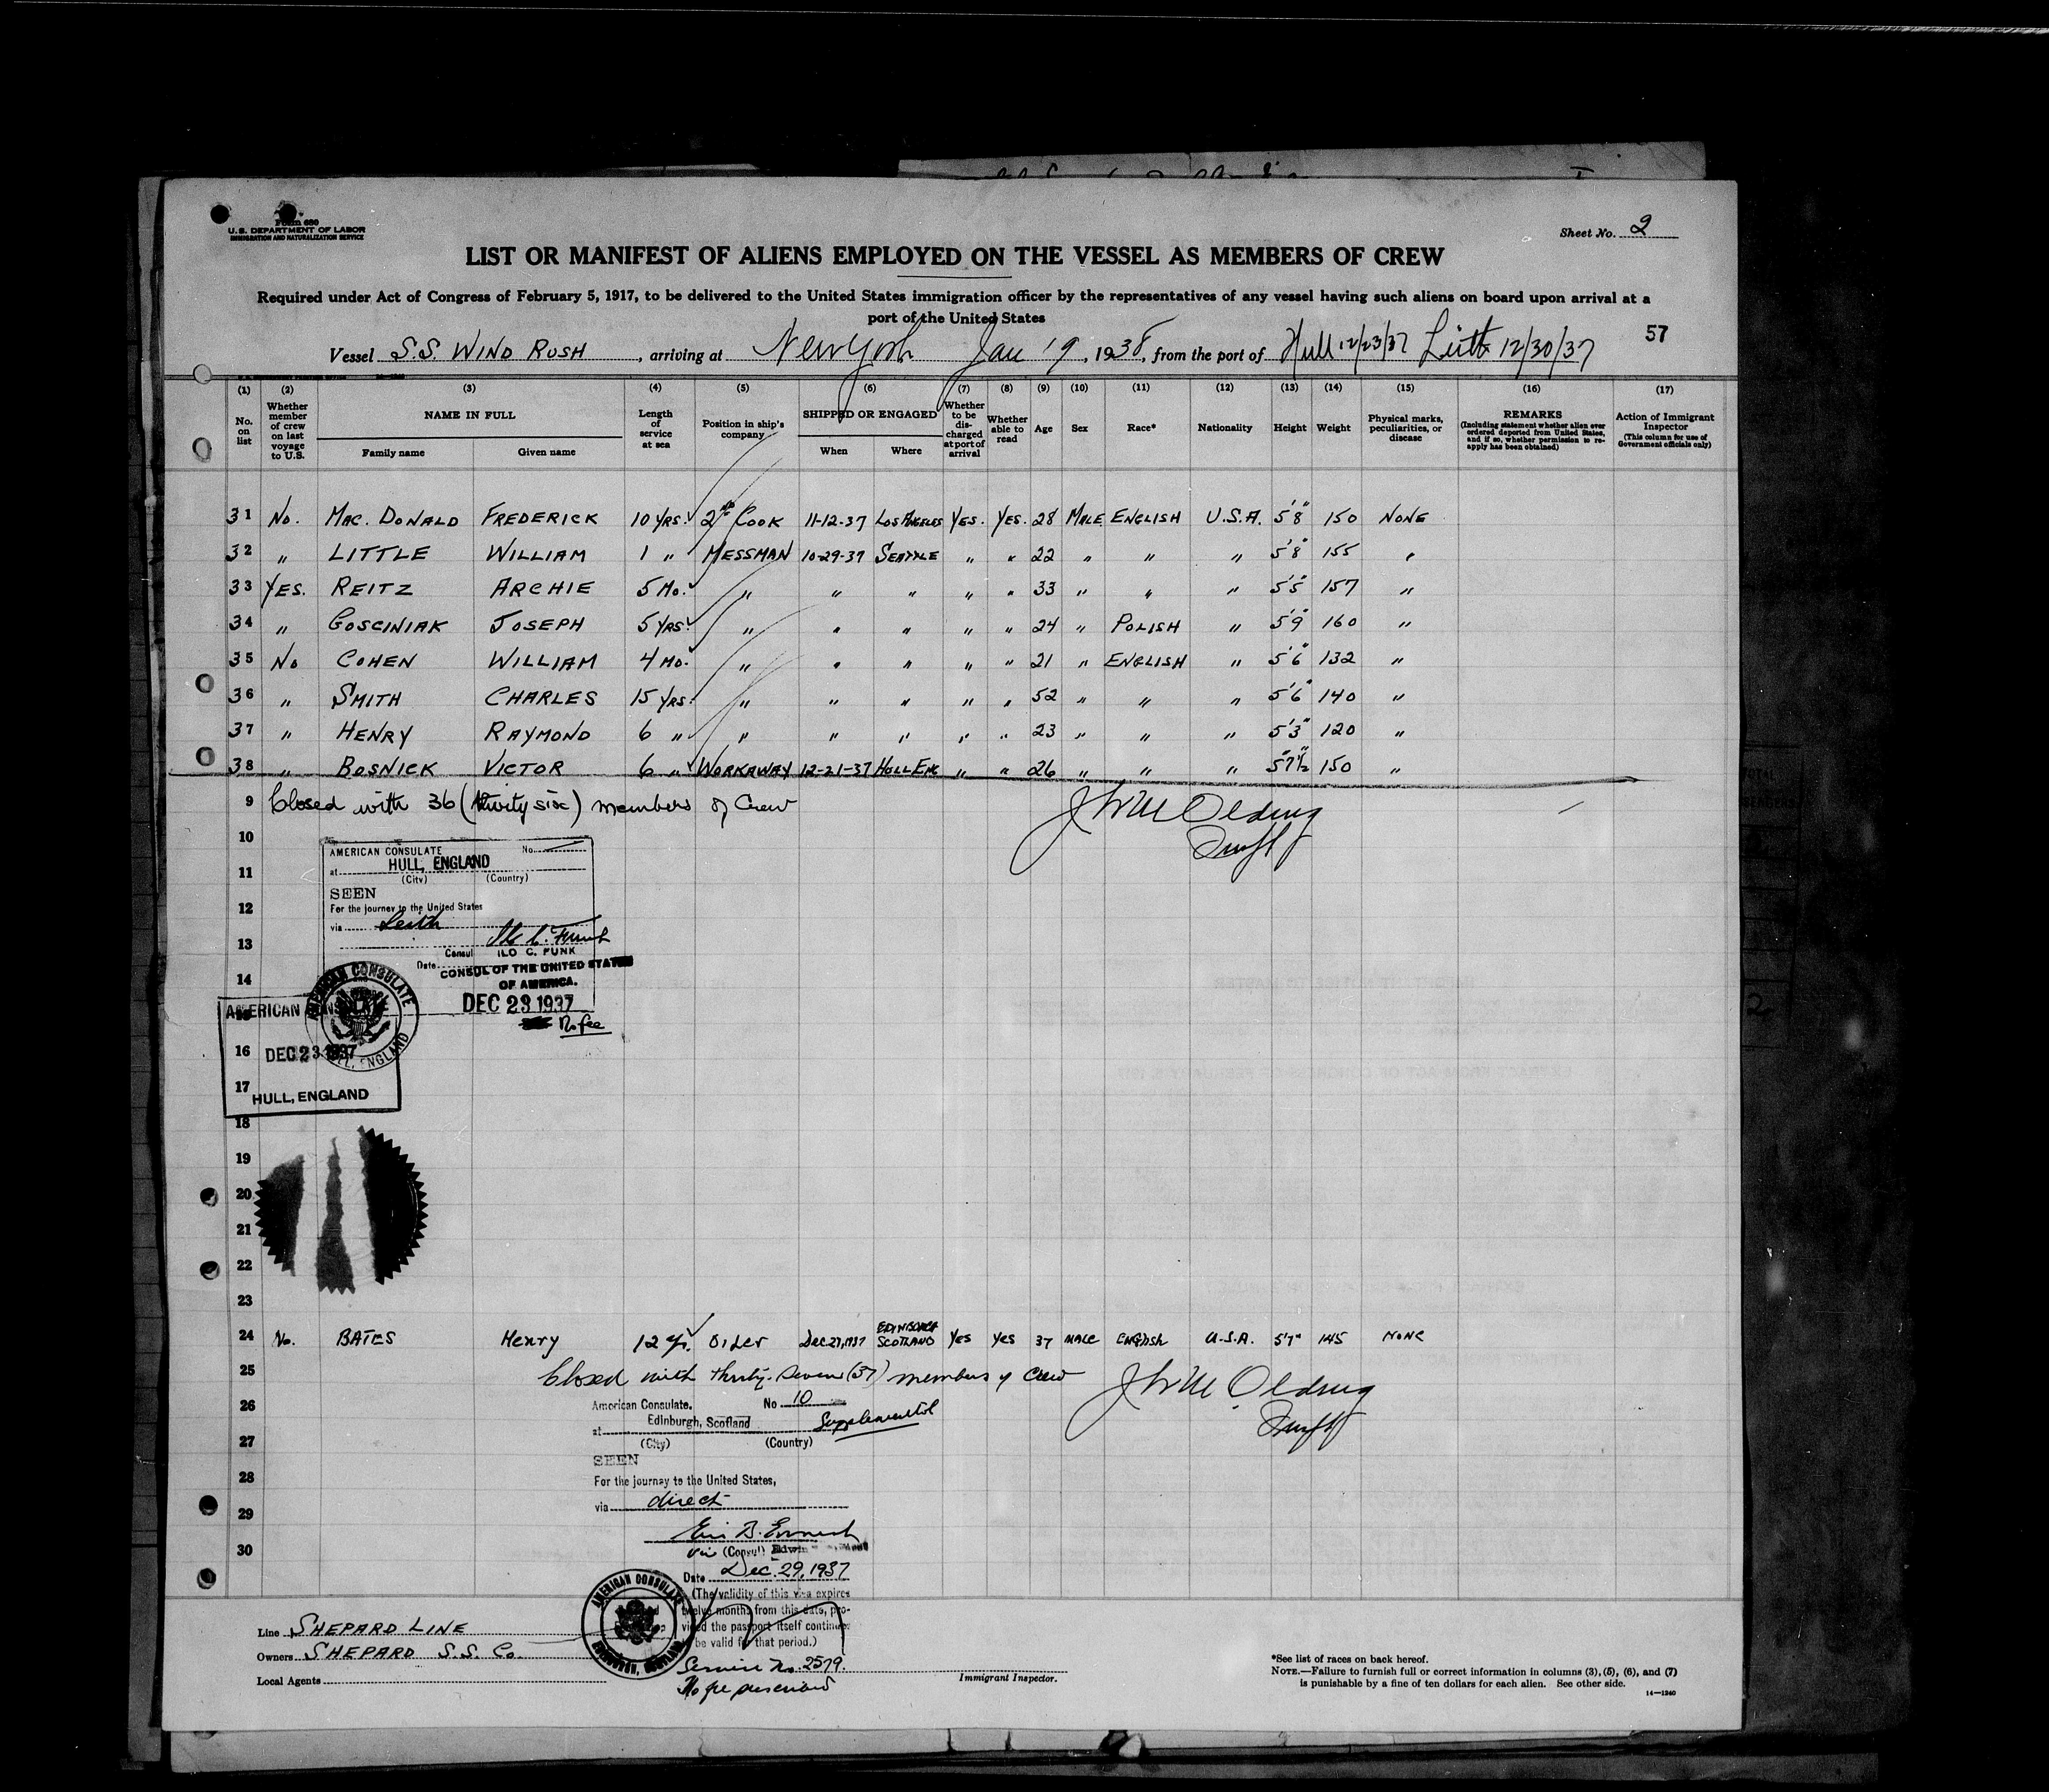 Form 680
U.S. DEPARTMENT OF LABOR
IMMIGRATION AND NATURALIZATION SERVICE
Sheet No. 2
LIST OR MANIFEST OF ALIENS EMPLOYED ON THE VESSEL AS MEMBERS OF CREW
Required under Act of Congress of February 5, 1917, to be delivered to the United States immigration officer by the representatives of any vessel having such aliens on board upon arrival at a
port of the United States
57
Vessel S.S. WIND RUSH, arriving at New York Jan 19, 1938, from the port of Hull 12/23/37 Leith 12/30/37
(1) (2) (3) (4) (5) (6) (7) (8) (9) (10) (11) (12) (13) (14) (15) (16) (17)
No. on list
Whether member of crew on last voyage to U.S.
NAME IN FULL
Family name
Given name
Length of service at sea
Position in ship's company
SHIPPED OR ENGAGED
When
Where
Whether to be discharged at port of arrival
Whether able to read
Age
Sex
Race*
Nationality
Height
Weight
Physical marks, peculiarities, or disease
REMARKS
(Including statement whether alien ever ordered deported from United States, and if so, whether permission to reapply has been obtained)
Action of Immigrant Inspector
(This column for use of Government officials only)
31 No. MAC. DONALD FREDERICK 10 YRS. 2nd COOK 11-12-37 LOS ANGELES YES. YES. 28 MALE ENGLISH U.S.A. 5'8" 150 NONE
32 " LITTLE WILLIAM 1 " MESSMAN 10-29-37 SEATTLE " " 22 " " " 5'8" 155 "
33 YES. REITZ ARCHIE 5 MO. " " " " " 33 " " " 5'5" 157 "
34 " GOSCINIAK JOSEPH 5 YRS. " " " " " 24 " POLISH " 5'9" 160 "
35 No COHEN WILLIAM 4 MO. " " " " " 21 " ENGLISH " 5'6" 132 "
36 " SMITH CHARLES 15 YRS. " " " " " 52 " " " 5'6" 140 "
37 " HENRY RAYMOND 6 " " " " " " 23 " " " 5'3" 120 "
38 " BOSNICK VICTOR 6 " WORKAWAY 12-21-37 HULL ENG " " 26 " " " 5'7½" 150 "
9 Closed with 36 (thirty six) members of Crew
10
AMERICAN CONSULATE No.
at HULL, ENGLAND
11
(City) (Country)
SEEN
12 For the journey to the United States
via Leith
13
Consul ILO C. FUNK
Date
CONSUL OF THE UNITED STATES
14 OF AMERICA.
DEC 23 1937
No fee
15
AMERICAN CONSULATE
HULL, ENGLAND
AMERICAN CONSULATE
16 DEC 23 1937
17
HULL, ENGLAND
18
19
20
21
22
23
24 No. BATES Henry 12 yr. OILER Dec 27, 1937 EDINBURGH SCOTLAND Yes Yes 37 MALE ENGLISH U.S.A. 5'7" 145 NONE
25 Closed with thirty-seven (37) members of Crew
26 American Consulate. No 10
at Edinburgh, Scotland Supplemental
27 (City) (Country)
SEEN
28 For the journey to the United States,
via direct
29
(Consul) Edwin
30
Date Dec. 29, 1937
(The validity of this visa expires
twelve months from this date, pro-
vided the passport itself continues
to be valid for that period.)
Service No. 2579.
No fee prescribed
AMERICAN CONSULATE
EDINBURGH, SCOTLAND
Line SHEPARD LINE
Owners SHEPARD S.S. Co.
Local Agents
Immigrant Inspector.
*See list of races on back hereof.
NOTE.—Failure to furnish full or correct information in columns (3), (5), (6), and (7)
is punishable by a fine of ten dollars for each alien. See other side.
14—1240